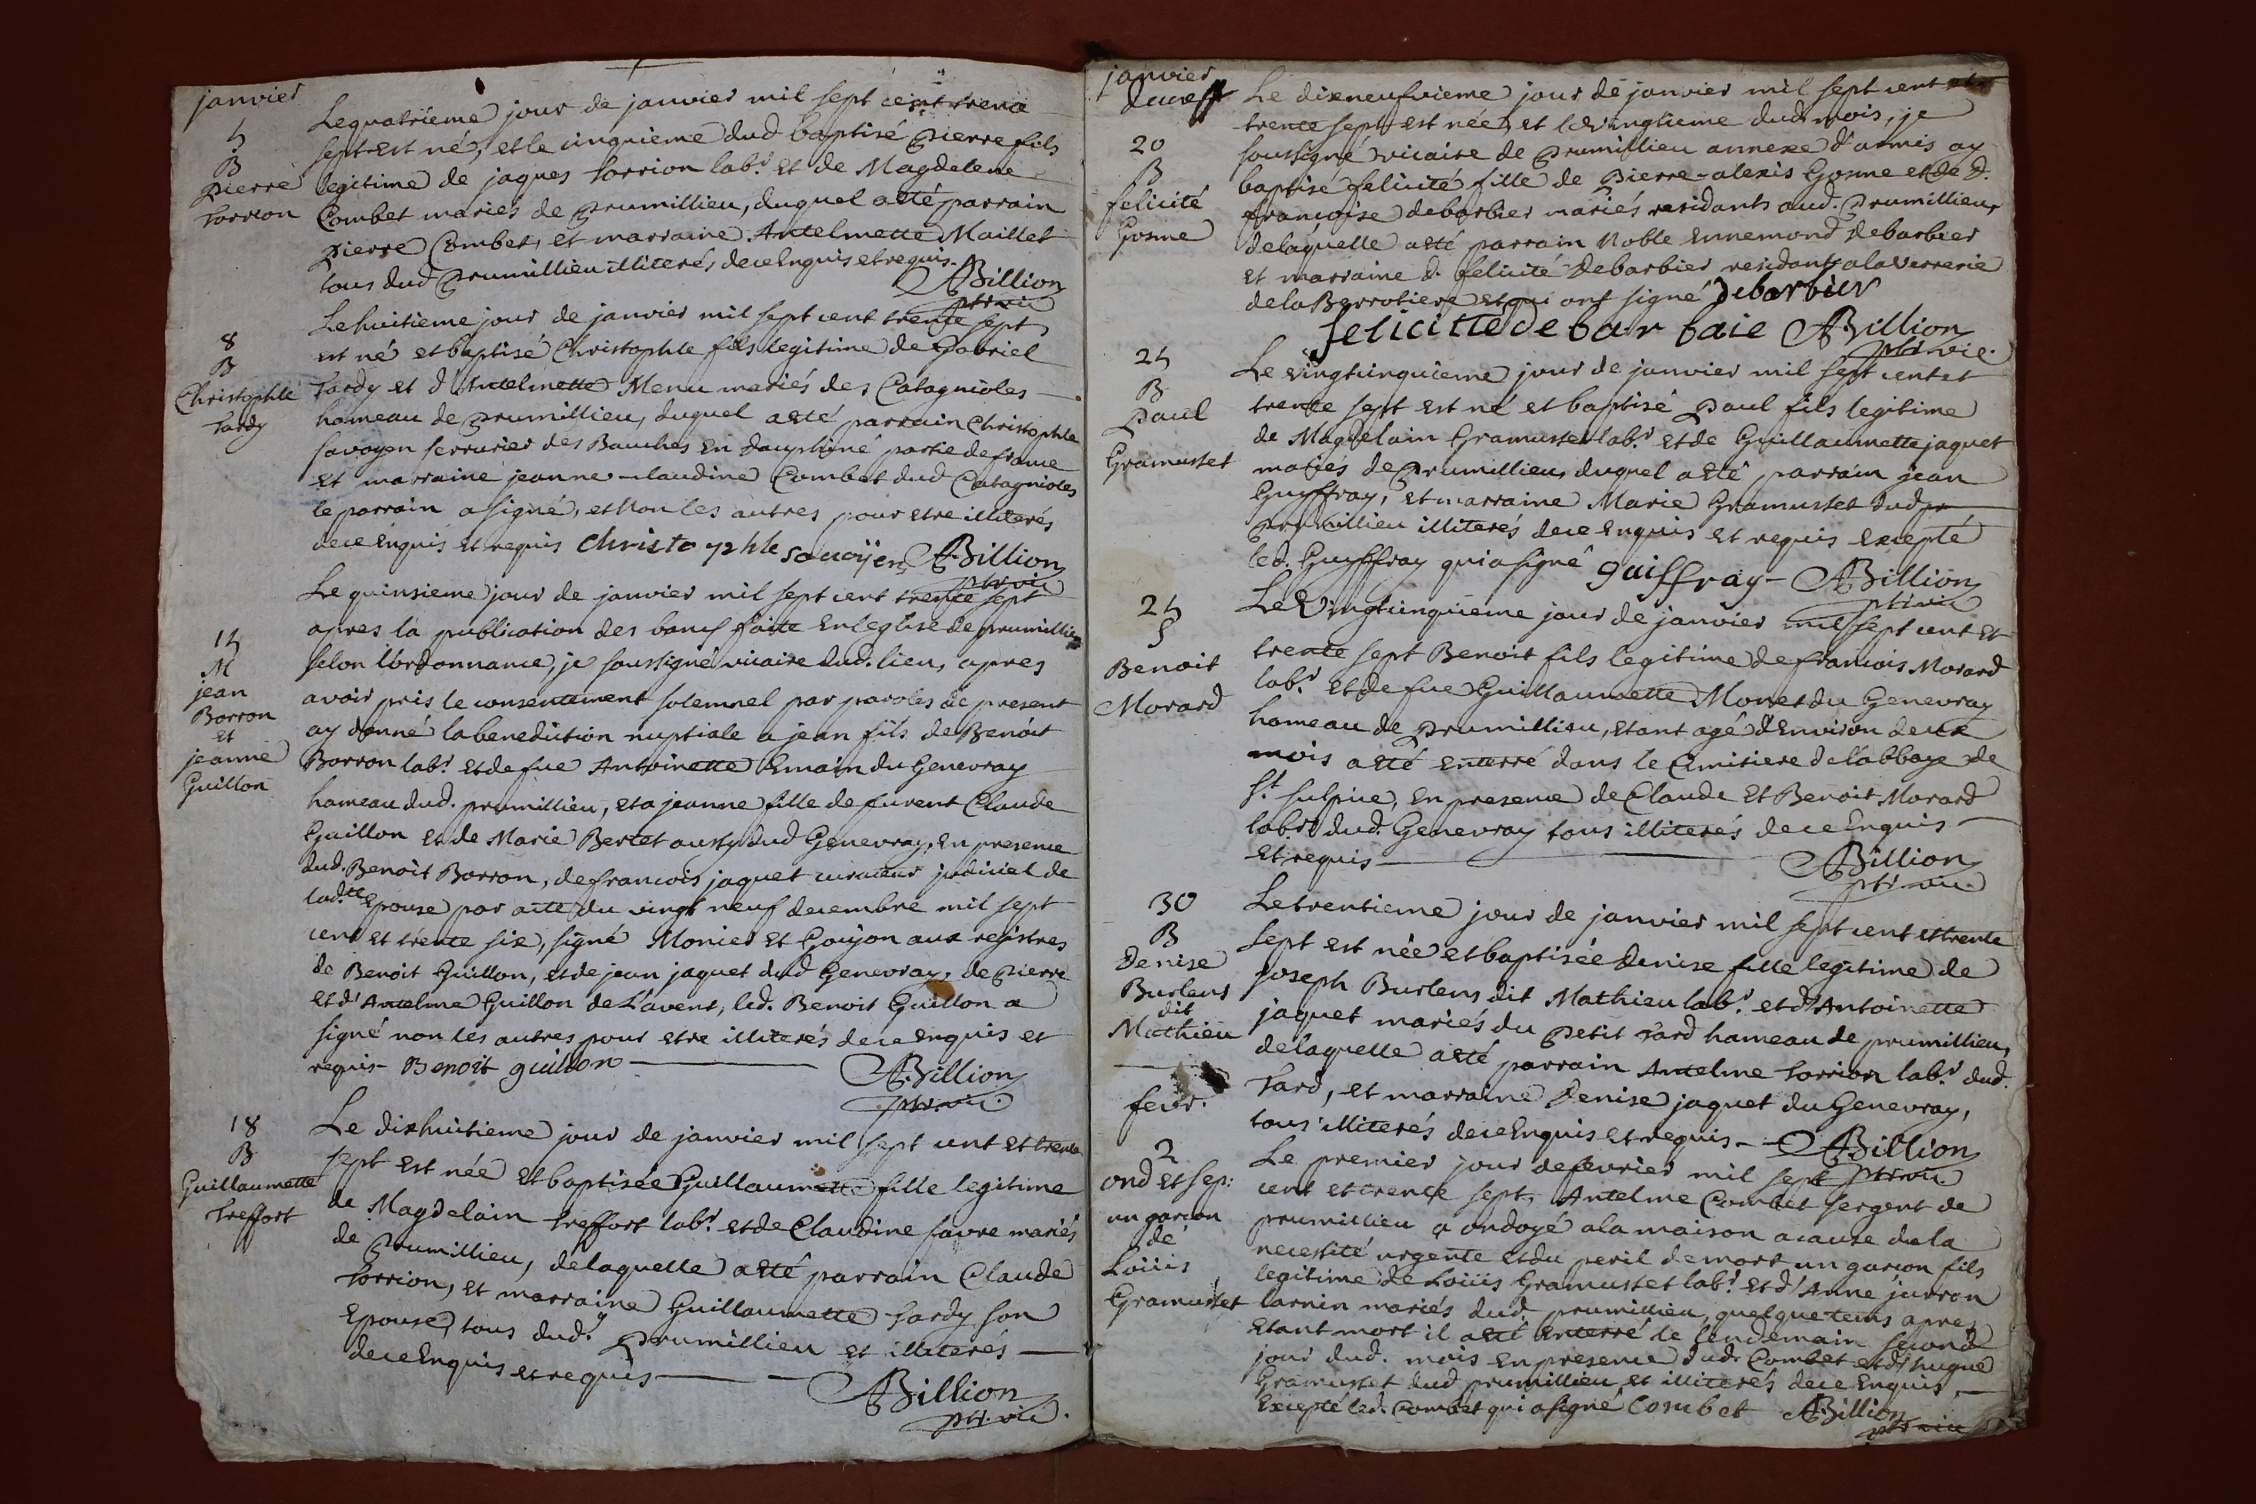 janvier
5
B
Pierre
Torrion
Le quatrieme jour de janvier mil sept cent trente
sept est né, et le cinquieme dud baptisé Pierre fils
legitime de jaques Torrion labr. et de Magdelene
Combet mariés de Prumillieu, duquel a été parrain
Pierre Combet, et marraine Antelmette Maillet
tous dud Prumillieu illiterés de ce Enquis et requis.
ABillion
ptr. vic
8
B
Christophle
Tardy
Le huitieme jour de janvier mil sept cent trente sept
est né et baptisé Christophle fils legitime de Gabriel
Tardy et d'Antelmette Menu mariés des Catagnioles
hameau de Prumillieu, duquel a eté parrain Christophle
savoyen serrurier des Bauches en dauphiné partie de france
et marraine jeanne-claudine Combet dud Catagnioles
le parrain a signé, et non les autres pour etre illiterés
de ce enquis et requis Christophle savoÿen ABillion
ptr. vic
15
M
jean
Borron
et
jeanne
Guillon
Le quinsieme jour de janvier mil sept cent trente sept
apres la publication des bancs faite en l'eglise de prumillieu
selon l'ordonnance, je soussigné vicaire dud. lieu, apres
avoir pris le consentement solemnel par paroles de present
ay donné la benediction nuptiale a jean fils de Benoit
Borron labr. et de fue Antoinette Emain du Genevray
hameau dud. prumillieu, et a jeanne fille de furent Claude
Guillon et de Marie Bertet aussy dud Genevray, en presence
dud. Benoit Borron, de francois jaquet curateur judiciel de
lad.tte Epouse par acte du vingt neuf decembre mil sept
cent et trente six, signé Monier et Goujon aux registres
de Benoit Guillon, et de jean jaquet dud Genevray, de Pierre
et d'Antelme Guillon de L'avent, led. Benoit Guillon a
signé non les autres pour etre illiterés de ce enquis et
requis - Benoit guillon
ABillion
ptr. vic.
18
B
Guillaumette
Treffort
Le dixhuitieme jour de janvier mil sept cent et trente
sept est née et baptisée Guillaumette fille legitime
de Magdelain Treffort labr. et de Claudine favre mariés
de Prumillieu, de laquelle a eté parrain Claude
Torrion, et marraine Guillaumette Tardy son
Epouse, tous dud. Prumillieu et illiterés
de ce Enquis et requis
ABillion
ptr. vic.
janvier
20
B
felicité
Gosme
Le dixneufvieme jour de janvier mil sept cent
trente sept est née, et le vingtieme dud mois, je
soussigné vicaire de Prumillieu annexe d'armis ay
baptisé felicité fille de Pierre-alexis Gosme et de d.
francoise debarbier mariés residants aud. Prumillieu,
de laquelle a eté parrain Noble Ennemond debarbier
et marraine d. felicité Debarbier residants a la Verrerie
de la Berrotiere et qui ont signé Debarbier
felicitte debarbaie ABillion
ptr. vic.
25
B
Paul
Gramusset
Le vingtcinquieme jour de janvier mil sept cent et
trente sept est né et baptisé Paul fils legitime
de Magdelain Gramusset labr. et de Guillaumette jaquet
mariés de Prumillieu, duquel a eté parrain jean
Guyffray, et marraine Marie Gramusset dud
Prumillieu illiterés de ce enquis et requis Excepté
led. Guyffray qui a signé guiffray - ABillion
ptr. vic
25
S
Benoit
Morard
Le Vingtcinquieme jour de janvier mil sept cent et
trente sept Benoit fils legitime de francois Morard
labr. et de fue Guillaumette Monet du Genevray
hameau de Prumillieu, etant agé d'Environ deux
mois a eté enterré dans le Cimitiere de l'abbaye de
St. sulpice, en presence de Claude et Benoit Morard
labrs. dud. Genevray tous illiterés de ce Enquis
et requis
ABillion
ptr. vic.
30
B
Denise
Burlens
dit
Mathieu
Le trentieme jour de janvier mil sept cent et trente
sept est née et baptisée denise fille legitime de
joseph Burlens dit Mathieu labr. et d'Antoinette
jaquet mariés du Petit Tard hameau de prumillieu,
de laquelle a eté parrain Antelme Torrion labr. dud.
Tard, et marraine Denise jaquet du Genevray,
tous illiterés de ce Enquis et requis - ABillion
ptr. vic.
fevr.
2
ond et sep:
un garcon
de
Loüis
Gramusset
Le premier jour de fevrier mil sept
cent et trente sept, Antelme Combet sergent de
prumillieu a ondoyé a la maison a cause de la
necessité urgente et du peril de mort un garcon fils
legitime de Loüis Gramusset labr. et d'Anne jurron
larnin mariés dud. prumillieu, quelque tems apres
etant mort il a eté enterré le lendemain second
jour dud. mois en presence dud. Combet et d'hugue
Gramusset dud prumillieu et illiterés de ce Enquis
Excepté led. Combet qui a signé Combet ABillion
ptr. vic